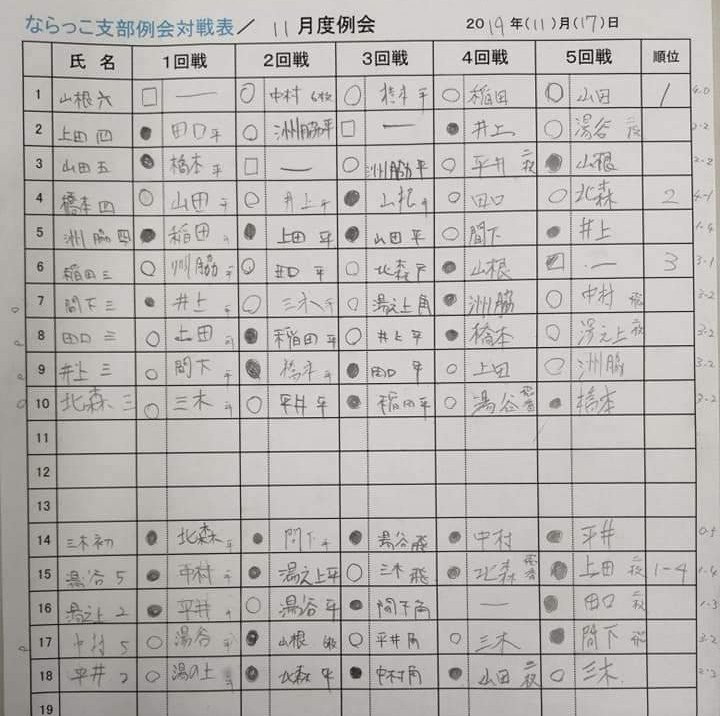 ならっこ支部例会対戦表／ 11月度例会 2019年(11)月(17)日
氏 名 1回戦 2回戦 3回戦 4回戦 5回戦 順位
1 山根六 □ — ○ 中村 6枚 ○ 橋本 平 ○ 稲田 ○ 山田 1 4-0
2 上田四 ● 田口平 ○ 洲脇平 □ — ● 井上 ○ 湯谷 二枚 2-2
3 山田五 ● 橋本平 □ — ○ 洲脇平 ○ 平井 二枚 ● 山根 2-2
4 橋本四 ○ 山田平 ○ 井上平 ● 山根平 ○ 田口 ○ 北森 2 4-1
5 洲脇四 ● 稲田 ● 上田平 ● 山田平 ○ 間下 ● 井上 1-4
6 稲田三 ○ 洲脇平 ○ 田口平 ○ 北森 ● 山根 □ — 3 3-1
7 間下三 ● 井上平 ○ 三木平 ○ 湯之上角 ● 洲脇 ○ 中村 飛 3-2
8 田口三 ○ 上田 ● 稲田平 ○ 井上平 ● 橋本 ○ 湯之上 二枚 3-2
9 井上三 ○ 間下平 ● 橋本平 ● 田口平 ○ 上田 ○ 洲脇 3-2
10 北森三 ○ 三木 ○ 平井平 ● 稲田平 ○ 湯谷 飛香 ● 橋本 3-2
11
12
13
14 三木初 ● 北森平 ● 間下平 ● 湯谷飛 ● 中村 ● 平井 0-5
15 湯谷5 ● 中村平 ● 湯之上平 ○ 三木飛 ● 北森 飛香 ● 上田 二枚 1-4 1-4
16 湯之上2 ● 平井 ○ 湯谷平 ● 間下角 — ● 田口 二枚 1-3
17 中村5 ○ 湯谷平 ● 山根 6枚 ○ 平井角 ○ 三木 ● 間下 飛 3-2
18 平井2 ○ 湯の上 ● 北森平 ● 中村角 ● 山田 二枚 ○ 三木
19